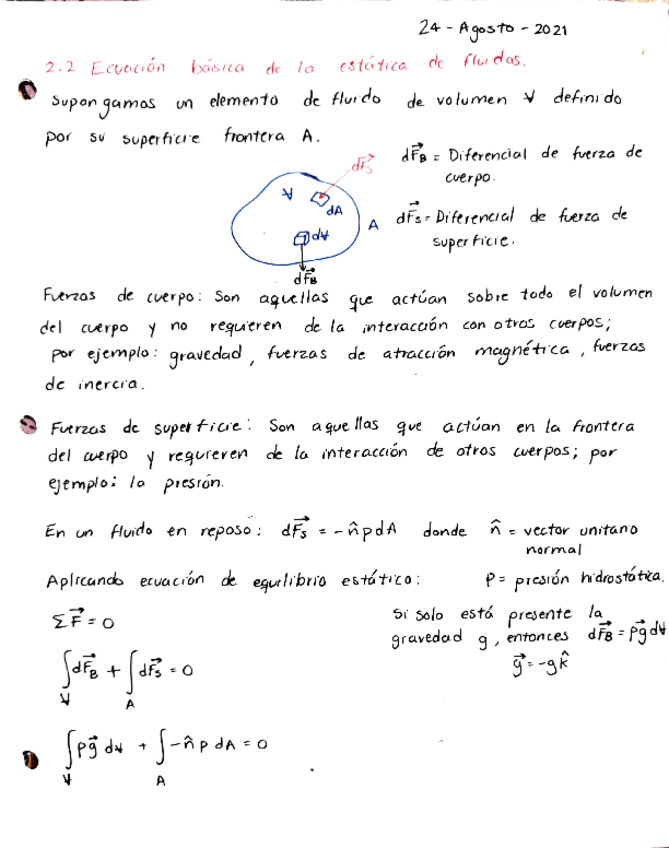 24 - Agosto - 2021
2.2 Ecuación básica de la estática de fluidos.
Supongamos un elemento de fluido de volumen V̶ definido
por su superficie frontera A.
dF⃗s
V̶
dA
A
dV̶
dF⃗B
dF⃗B = Diferencial de fuerza de
cuerpo.
dF⃗s = Diferencial de fuerza de
superficie.
Fuerzas de cuerpo: Son aquellas que actúan sobre todo el volumen
del cuerpo y no requieren de la interacción con otros cuerpos;
por ejemplo: gravedad, fuerzas de atracción magnética, fuerzas
de inercia.
Fuerzas de superficie: Son aquellas que actúan en la frontera
del cuerpo y requieren de la interacción de otros cuerpos; por
ejemplo: la presión.
En un fluido en reposo: dF⃗s = -n̂pdA donde n̂ = vector unitario
normal
Aplicando ecuación de equilibrio estático: P = presión hidrostática.
ΣF⃗ = 0
Si solo está presente la
gravedad g, entonces dF⃗B = ρg⃗dV̶
g⃗ = -gk̂
∫V̶ dF⃗B + ∫A dF⃗s = 0
∫V̶ ρg⃗ dV̶ + ∫A -n̂ p dA = 0